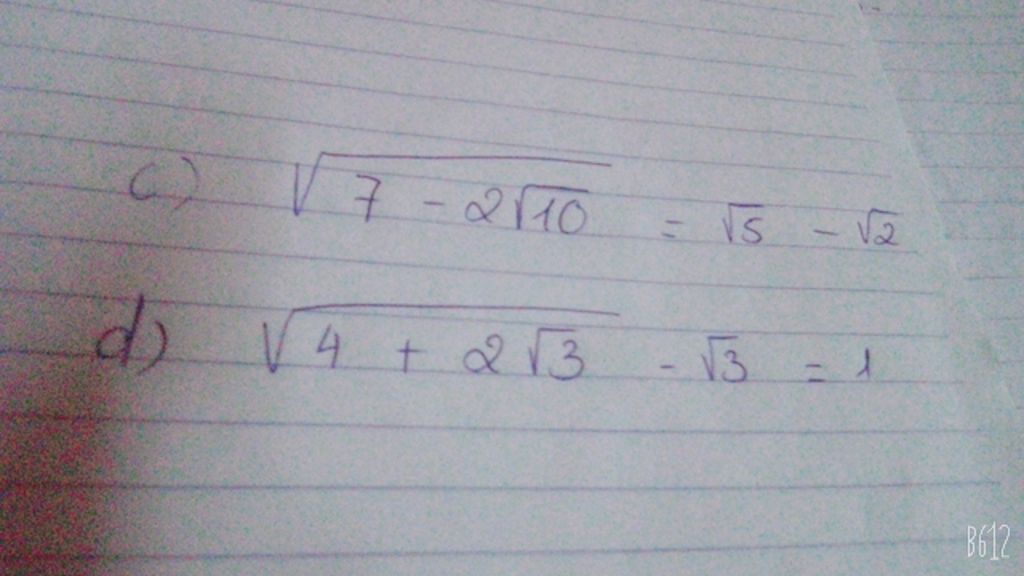 c) √(7 - 2√10) = √5 - √2
d) √(4 + 2√3) - √3 = 1
B612